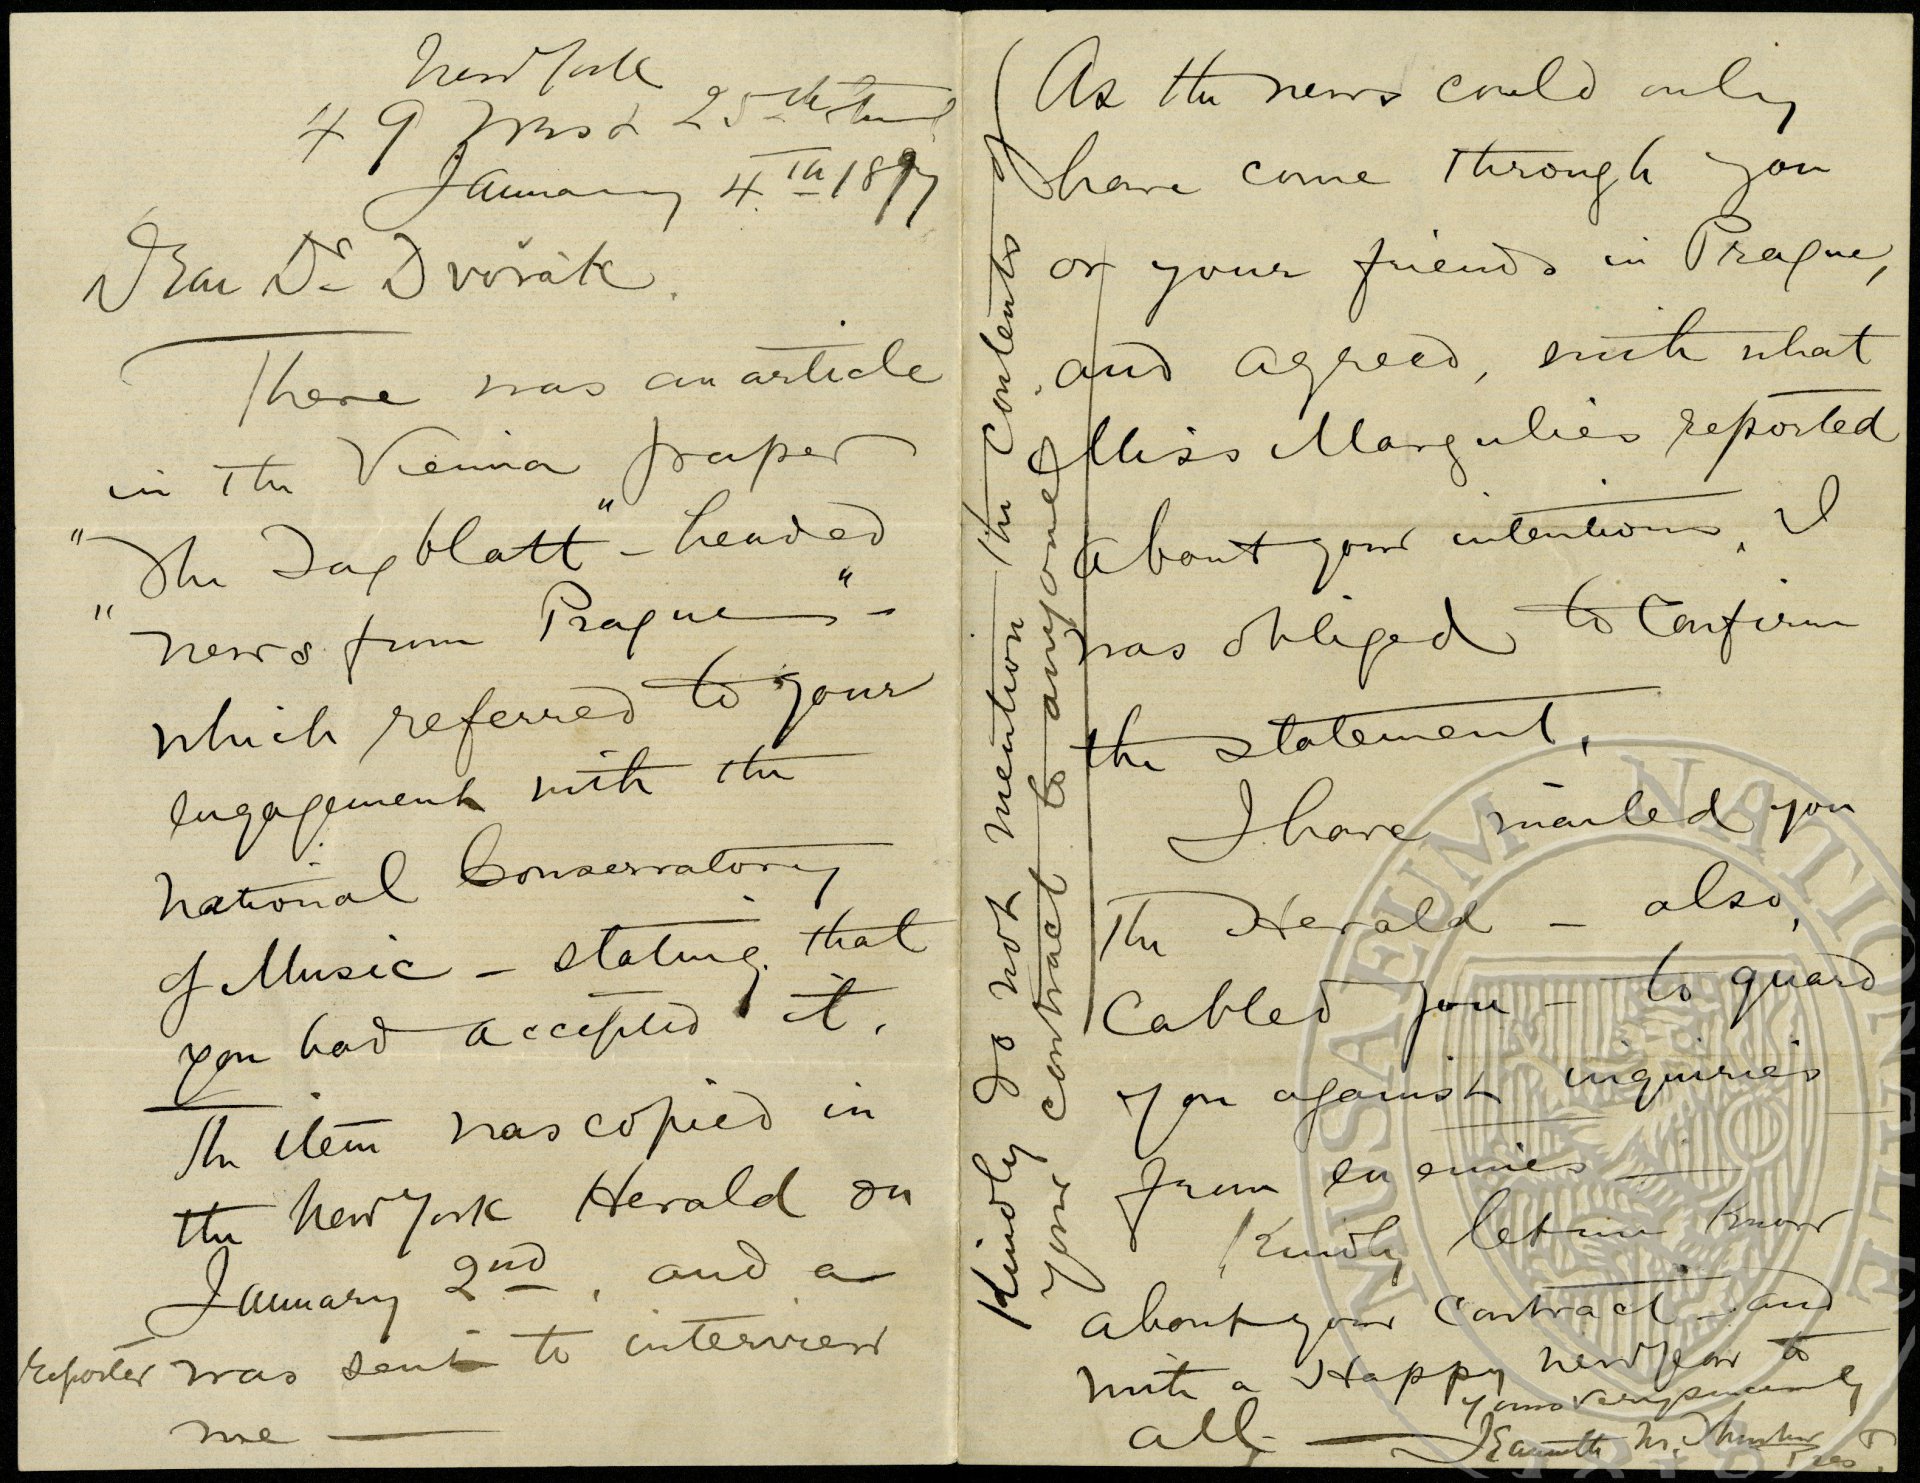 New York
49 West 25th Street
January 4th 1897
Dear Dr Dvořák.
There was an article
in the Vienna paper
"The Tagblatt" – headed
"News from Prague" –
which referred to your
engagement with the
National Conservatory
of Music – stating that
you had accepted it.
The item was copied in
the New York Herald on
January 2nd, and a
reporter was sent to interview
me —
As the news could only
have come through you
or your friends in Prague,
and agreed, with what
Miss Margulies reported
about your intentions, I
was obliged to confirm
the statement.
I have mailed you
The Herald – also,
Cabled you – to guard
you against inquiries
from enemies —
Kindly let me know
about your contract – and
with a Happy New Year to
all —
Yours very sincerely
Jeannette M. Thurber
Pres.
Kindly do not mention the contents of
your contract to anyone
MUSAEUM NATIONALE
1818